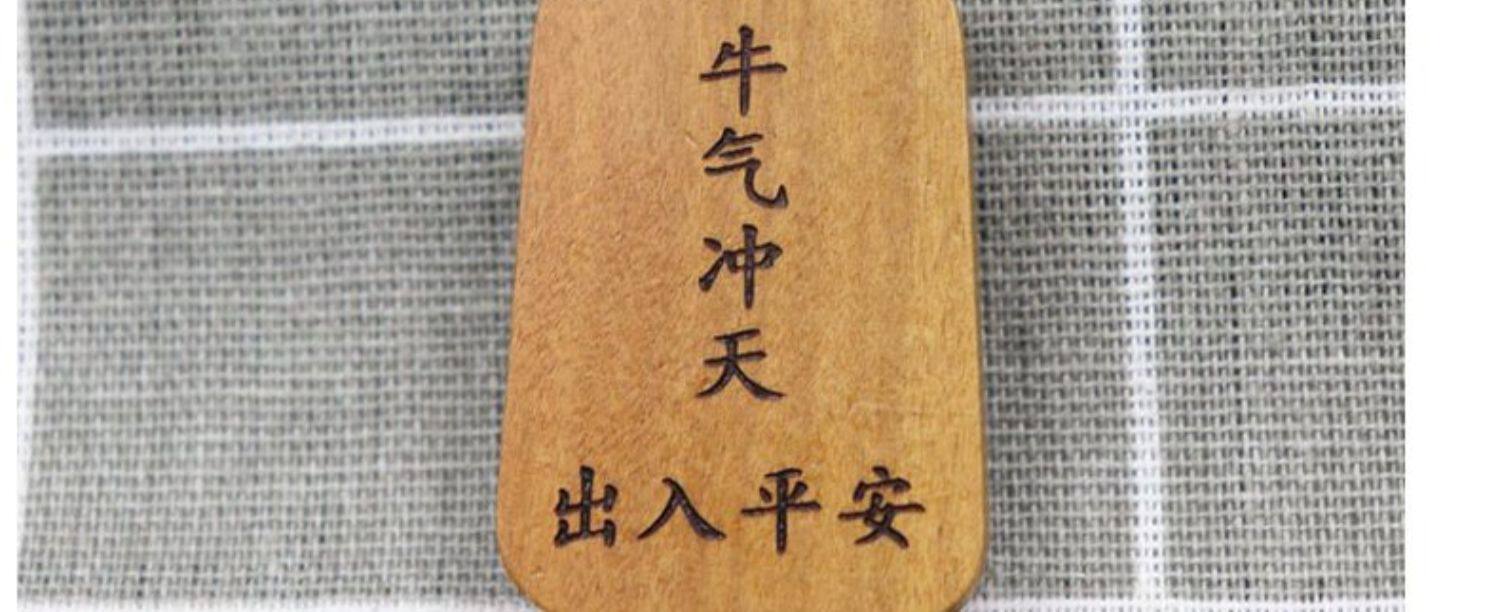 牛气冲天
出入平安